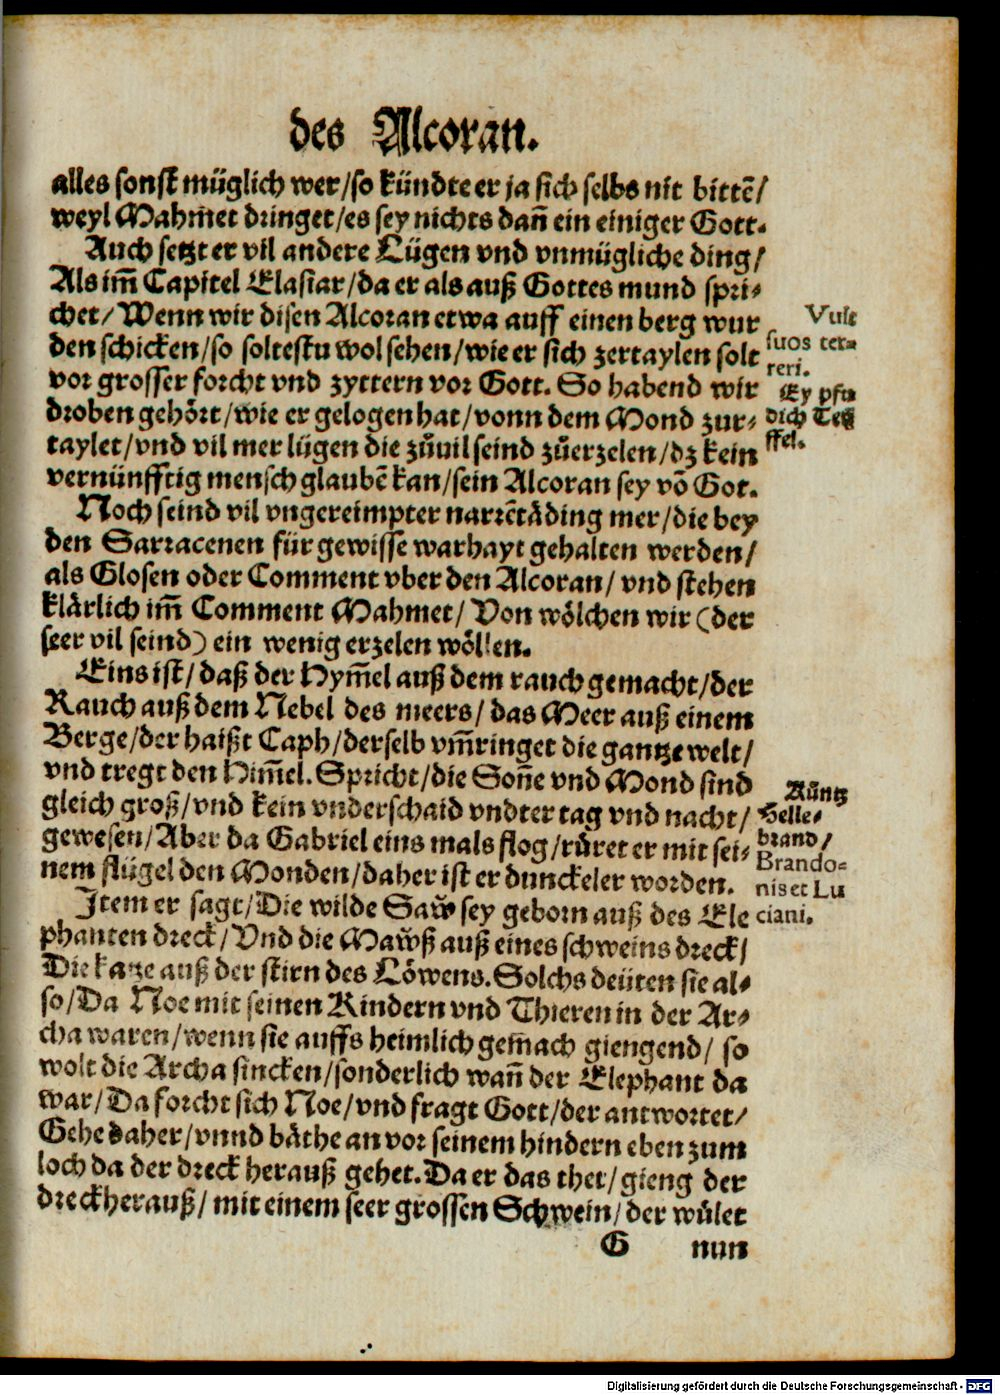 des Alcoran.
alles sonst müglich wer/so kündte er ja sich selbs nit bittē/
weyl Mahmet dringet/es sey nichts dañ ein einiger Gott.
Auch setzt er vil andere Lügen vnd vnmügliche ding/
Als im̃ Capitel Elasiar/da er als auß Gottes mund spri⸗
chet/Wenn wir disen Alcoran etwa auff einen berg wur
den schicken/so soltestu wol sehen/wie er sich zertaylen solt
vor grosser forcht vnd zyttern vor Gott. So habend wir
droben gehört/wie er gelogen hat/vonn dem Mond zur⸗
taylet/vnd vil mer lügen die zůuil seind zůerzelen/dz kein
vernünfftig mensch glaubē kan/sein Alcoran sey vō Got.
Noch seind vil vngereimpter narrētåding mer/die bey
den Sarracenen für gewisse warhayt gehalten werden/
als Glosen oder Comment vber den Alcoran/vnd stehen
klärlich im̃ Comment Mahmet/Von wölchen wir (der
seer vil seind) ein wenig erzelen wöllen.
Eins ist/daß der Hym̃el auß dem rauch gemacht/der
Rauch auß dem Nebel des meers/das Meer auß einem
Berge/der haißt Caph/derselb vm̃ringet die gantze welt/
vnd tregt den Him̃el. Spricht/die Soñe vnd Mond sind
gleich groß/vnd kein vnderschaid vndter tag vnd nacht/
gewesen/Aber da Gabriel eins mals flog/růret er mit sei⸗
nem flügel den Monden/daher ist er dunckeler worden.
Item er sagt/Die wilde Saw̌ sey geborn auß des Ele
phanten dreck/Vnd die Maw̌ß auß eines schweins dreck/
Die katze auß der stirn des Löwens. Solchs deüten sie al⸗
so/Da Noe mit seinen Kindern vnd Thieren in der Ar⸗
cha waren/wenn sie auffs heimlich gem̃ach giengend/so
wolt die Archa sincken/sonderlich wañ der Elephant da
war/Da forcht sich Noe/vnd fragt Gott/der antwortet/
Gehe daher/vnnd bäthe an vor seinem hindern eben zum
loch da der dreck herauß gehet. Da er das thet/gieng der
dreck herauß/mit einem seer grossen Schwein/der wület
G nun
Vult
suos ter⸗
reri.
Ey pfu
dich Teü
ffel.
Küntz
Helle⸗
brand/
Brando⸗
nis et Lu
ciani.
Digitalisierung gefördert durch die Deutsche Forschungsgemeinschaft - DFG